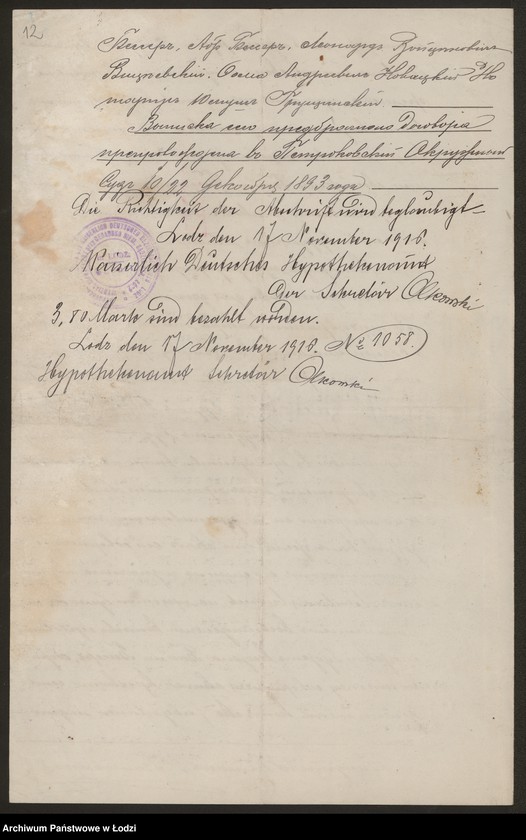 12
Бехер, Абр Бехер, Леонард Войцехович
Вицковский. Осип Андреевич Новацкий Но
тариус Юлиан Грущинский.
Выписка сего предбрачного договора
препровождена в Петроковский Окружный
Суд 10/22 Декабря 1893 года
Die Richtigkeit der Abschrift wird beglaubigt
Lodz den 17 November 1915.
Kaiserlich Deutsches Hypothekenamt
Der Sekretär
3,80 Mark sind bezahlt worden.
Lodz den 17 November 1915. № 1058.
Hypothekenamt Sekretär
Archiwum Państwowe w Łodzi